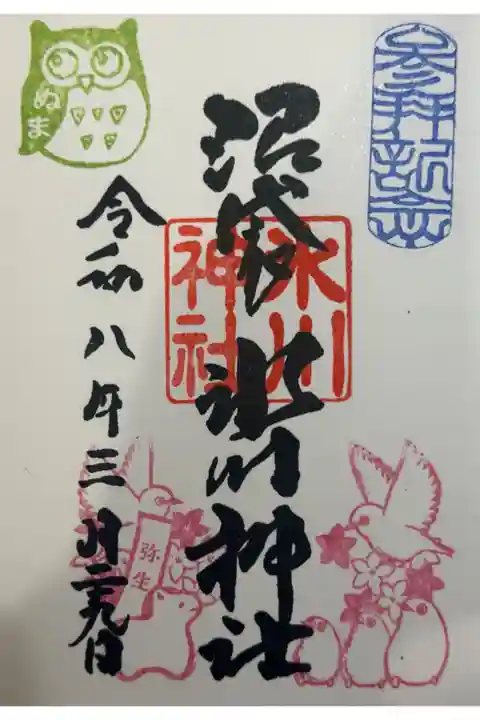 参拝記念
沼袋氷川神社
氷川
神社
ぬま
令和八年三月二九日
弥生